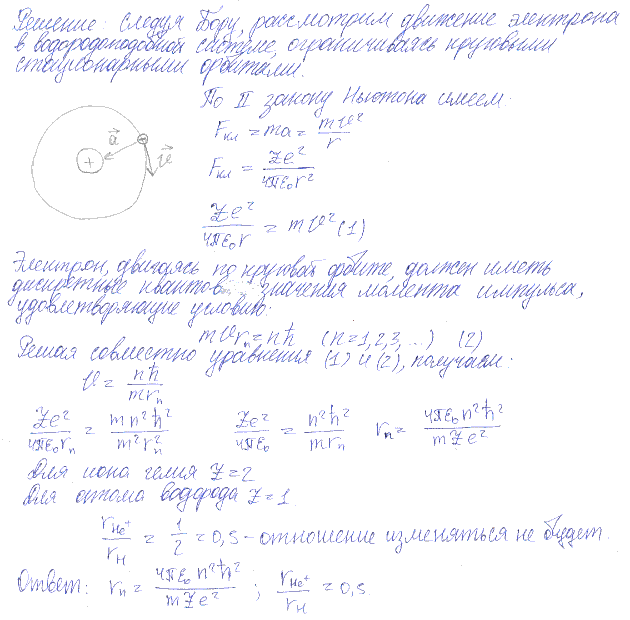 Решение: следуя Бору, рассмотрим движение электрона
в водородоподобной системе, ограничиваясь круговыми
стационарными орбитами.
По II закону Ньютона имеем:
Fкл = ma = mυ²/r
Fкл = Ze²/4πε₀r²
Ze²/4πε₀r = mυ² (1)
a⃗ + − υ⃗
Электрон, двигаясь по круговой орбите, должен иметь
дискретные квантов. значения момента импульса,
удовлетворяющие условию:
mυrₙ = nħ (n=1,2,3,...) (2)
Решая совместно уравнения (1) и (2), получаем:
υ = nħ/mrₙ
Ze²/4πε₀rₙ = mn²ħ²/m²rₙ² Ze²/4πε₀ = n²ħ²/mrₙ rₙ = 4πε₀n²ħ²/mZe²
Для иона гелия Z=2
Для атома водорода Z=1
rHe⁺/rH = 1/2 = 0,5 - отношение изменяться не будет.
Ответ: rₙ = 4πε₀n²ħ²/mZe² ; rHe⁺/rH = 0,5